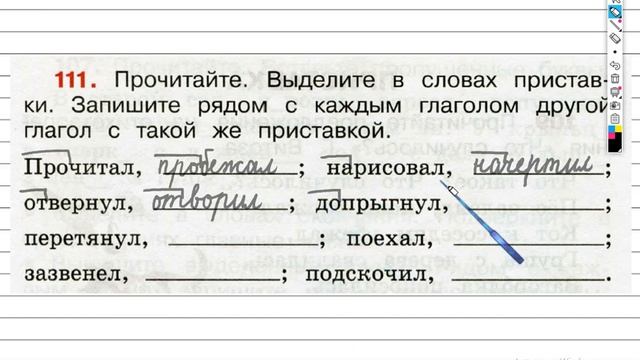 111. Прочитайте. Выделите в словах пристав-
ки. Запишите рядом с каждым глаголом другой
глагол с такой же приставкой.
Прочитал, пробежал; нарисовал, начертил;
отвернул, отворил; допрыгнул,            ;
перетянул,            ; поехал,            ;
зазвенел,            ; подскочил,            .